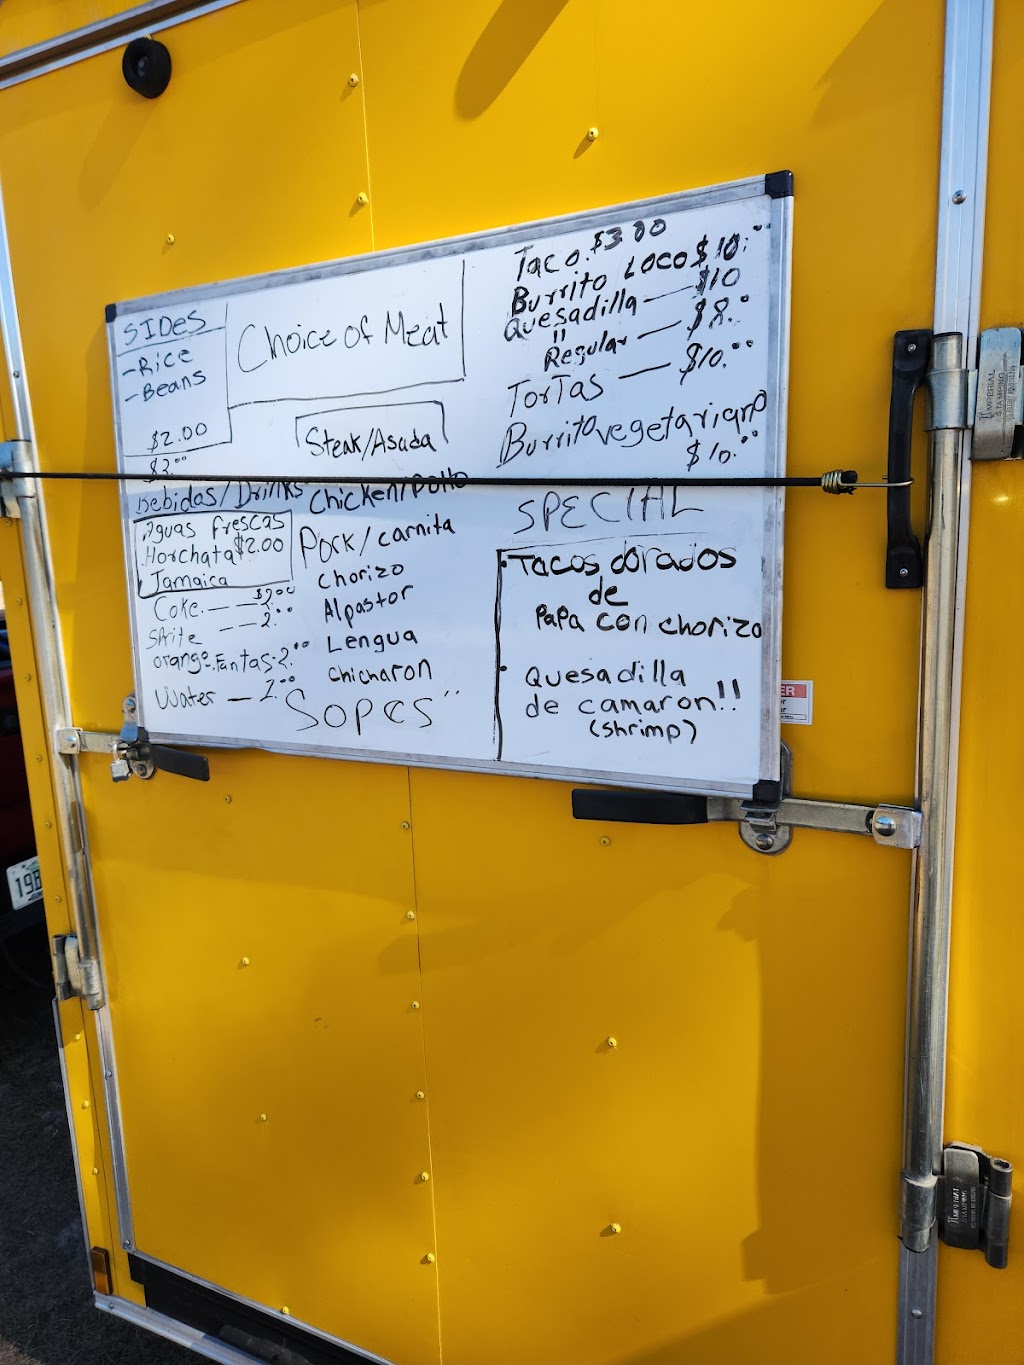 SIDES
-Rice
-Beans
$2.00
$3.00
Bebidas/Drinks
Aguas frescas
Horchata $2.00
Jamaica
Coke.——$2.00
Sprite ——2.00
orange.Fantas-2.00
Water — 1.00
Choice of Meat
Steak/Asada
Chicken/Pollo
Pork/carnita
Chorizo
Alpastor
Lengua
chicharon
Sopes"
Taco.$3.00
Burrito Loco $10.00
Quesadilla — $10
" Regular — $8.0
Tortas — $10.00
Burrito vegetariano
$10.00
SPECIAL
•Tacos dorados
de
Papa con chorizo
• Quesadilla
de camaron!!
(shrimp)
IMPERIAL
STAMPING
19B